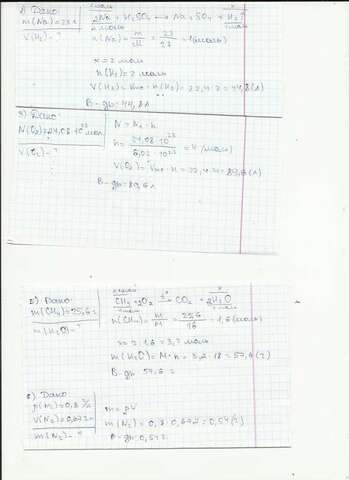 Дано:
m(Na)=23г
V(H₂)-?
2Na + H₂SO₄ → Na₂SO₄ + H₂↑
2 моль
n(Na) = m/M = 23/23 = 1 (моль)
x = 2 моль
n(H₂) = 2 моль
V(H₂) = Vm · n(H₂) = 22,4 · 2 = 44,8 (л)
В-дь: 44,8 л
Дано:
N(O₂)=24,08·10²³ мол
V(O₂)-?
N = Nₐ · n
n = 24,08·10²³ / 6,02·10²³ = 4 (моль)
V(O₂) = Vm · n = 22,4·4 = 89,6 (л)
В-дь: 89,6 л
Дано
m(CH₄)=25,6 г
m(H₂O)-?
CH₄ + 2O₂ → CO₂ + 2H₂O
n(CH₄) = m/M = 25,6/16 = 1,6 (моль)
x = 2·1,6 = 3,2 моль
m(H₂O) = M·n = 3,2·18 = 57,6 (г)
В-дь: 57,6 г
Дано
ρ(N₂)=0,8 г/л
V(N₂)=0,672 л
m(N₂)-?
m = ρV
m(N₂) = 0,8·0,672 = 0,54 (г)
В-дь: 0,54 г